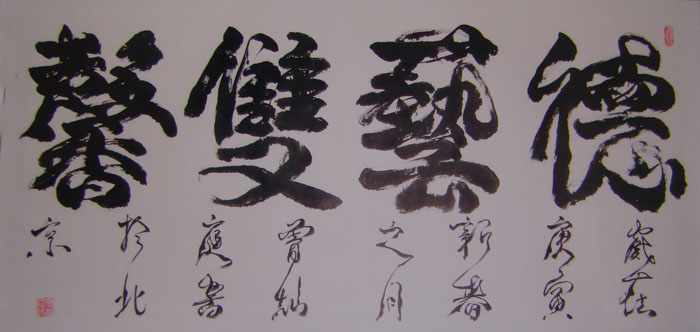 德藝雙馨
歲在
庚寅
新春
之月
曾灿
書
於北
京